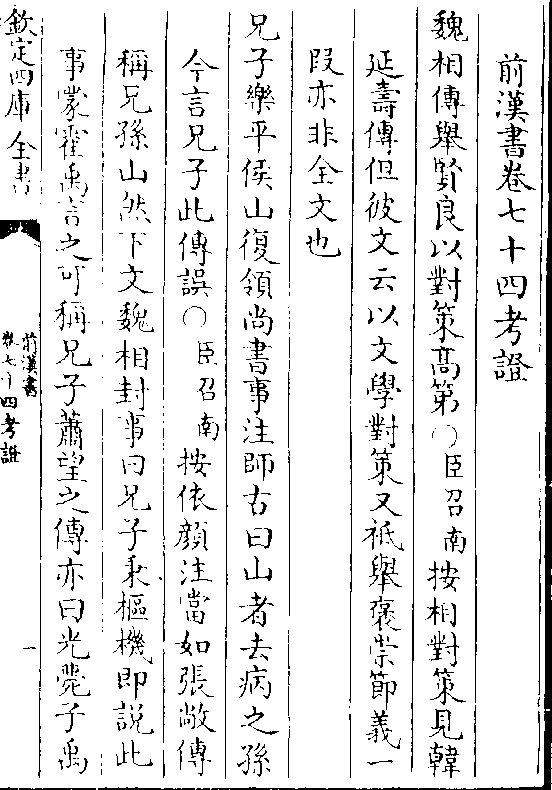 前漢書卷七十四考證
魏相傳舉賢良以對策高第○臣召南按相對策見韓
延壽傳但彼文云以文學對策又祗舉褒崇節義一
段亦非全文也
兄子樂平侯山復領尚書事注師古曰山者去病之孫
今言兄子此傳誤○臣召南按依顔注當如張敞傳
稱兄孫山然下文魏相封事曰兄子秉樞機即說此
事蒙霍禹言之可稱兄子蕭望之傳亦曰光薨子禹
欽定四庫全書
前漢書
卷七十四考證
一